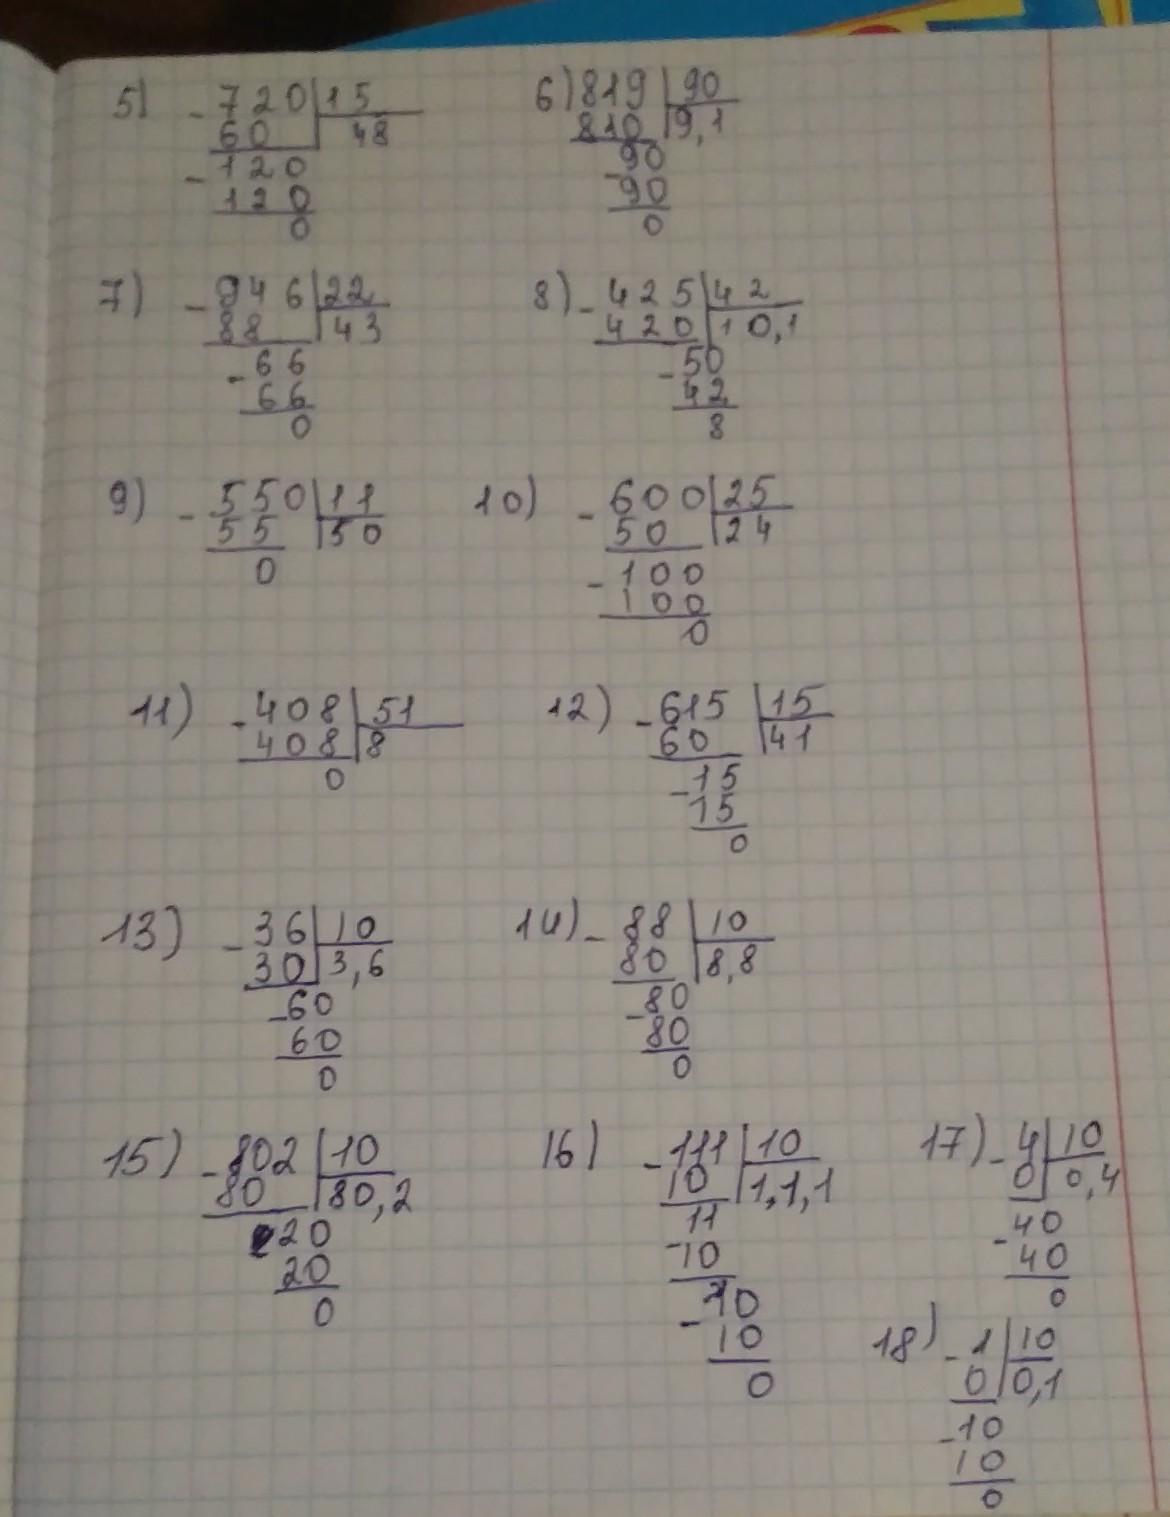 5) -720|15
60 48
-120
120
0
6) 819|90
810 9,1
-90
90
0
7) -946|22
88 43
-66
66
0
8) -425|42
420 10,1
-50
42
8
9) -550|11
55 50
0
10) -600|25
50 24
-100
100
0
11) -408|51
408 8
0
12) -615|15
60 41
-15
15
0
13) -36|10
30 3,6
-60
60
0
14) -88|10
80 8,8
-80
80
0
15) -802|10
80 80,2
20
20
0
16) -111|10
10 1,1,1
11
-10
-10
10
0
17) -4|10
0 0,4
-40
40
0
18) -1|10
0 0,1
-10
10
0